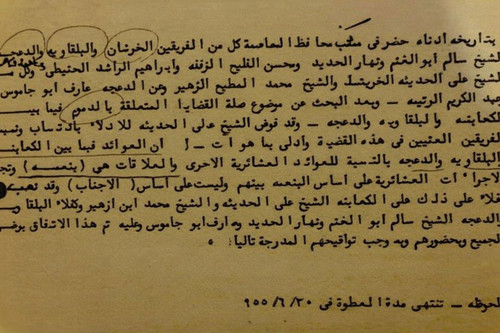 بتاريخه أدناه حضر في مكتب محافظ العاصمة كل من الفريقين الخرشان والبلقاويه والدعجه
شيخ سالم أبو الغنم ونهار الحديد ومحسن الفليح الزفنه وابراهيم الراشد الحنيطي وكل من
شيخ على الحديثه الخريشا والشيخ محمد المطيع الزهير ومن الدعجه عارف ابو جاموس
عبد الكريم الرتيمه — وبعد البحث عن موضوع صلة القضايا المتعلقة بالدموم فيما بين
الكعابنه والبلقاويه والدعجه — وقد فوض الشيخ على الحديثه للادلاء بالانتساب ونسبة
الفريقين المعنيين في هذه القضية وادلى بما هو آت — ان العوائد فيما بين الكعابنه
البلقاويه والدعجه بالنسبة للعوائد العشائرية الاخرى والعلاقات هي (بنعمه) وتجري
الاجراءات العشائرية على أساس البنعمه بينهم وليست على أساس (الاجناب) وقد تعهد به
كفلاء على ذلك على الكعابنه الشيخ على الحديثه والشيخ محمد ابن ازهير وكفلاء البلقاويه
والدعجه الشيخ سالم ابو الغنم ونهار الحديد وعارف ابو جاموس وعليه تم هذا الاتفاق بوضع
الجميع وبحضورهم وبموجب تواقيعهم المدرجة تاليا:
لحوظه — تنتهي مدة العطوة في ٢٠/ ٦/ ٩٥٥